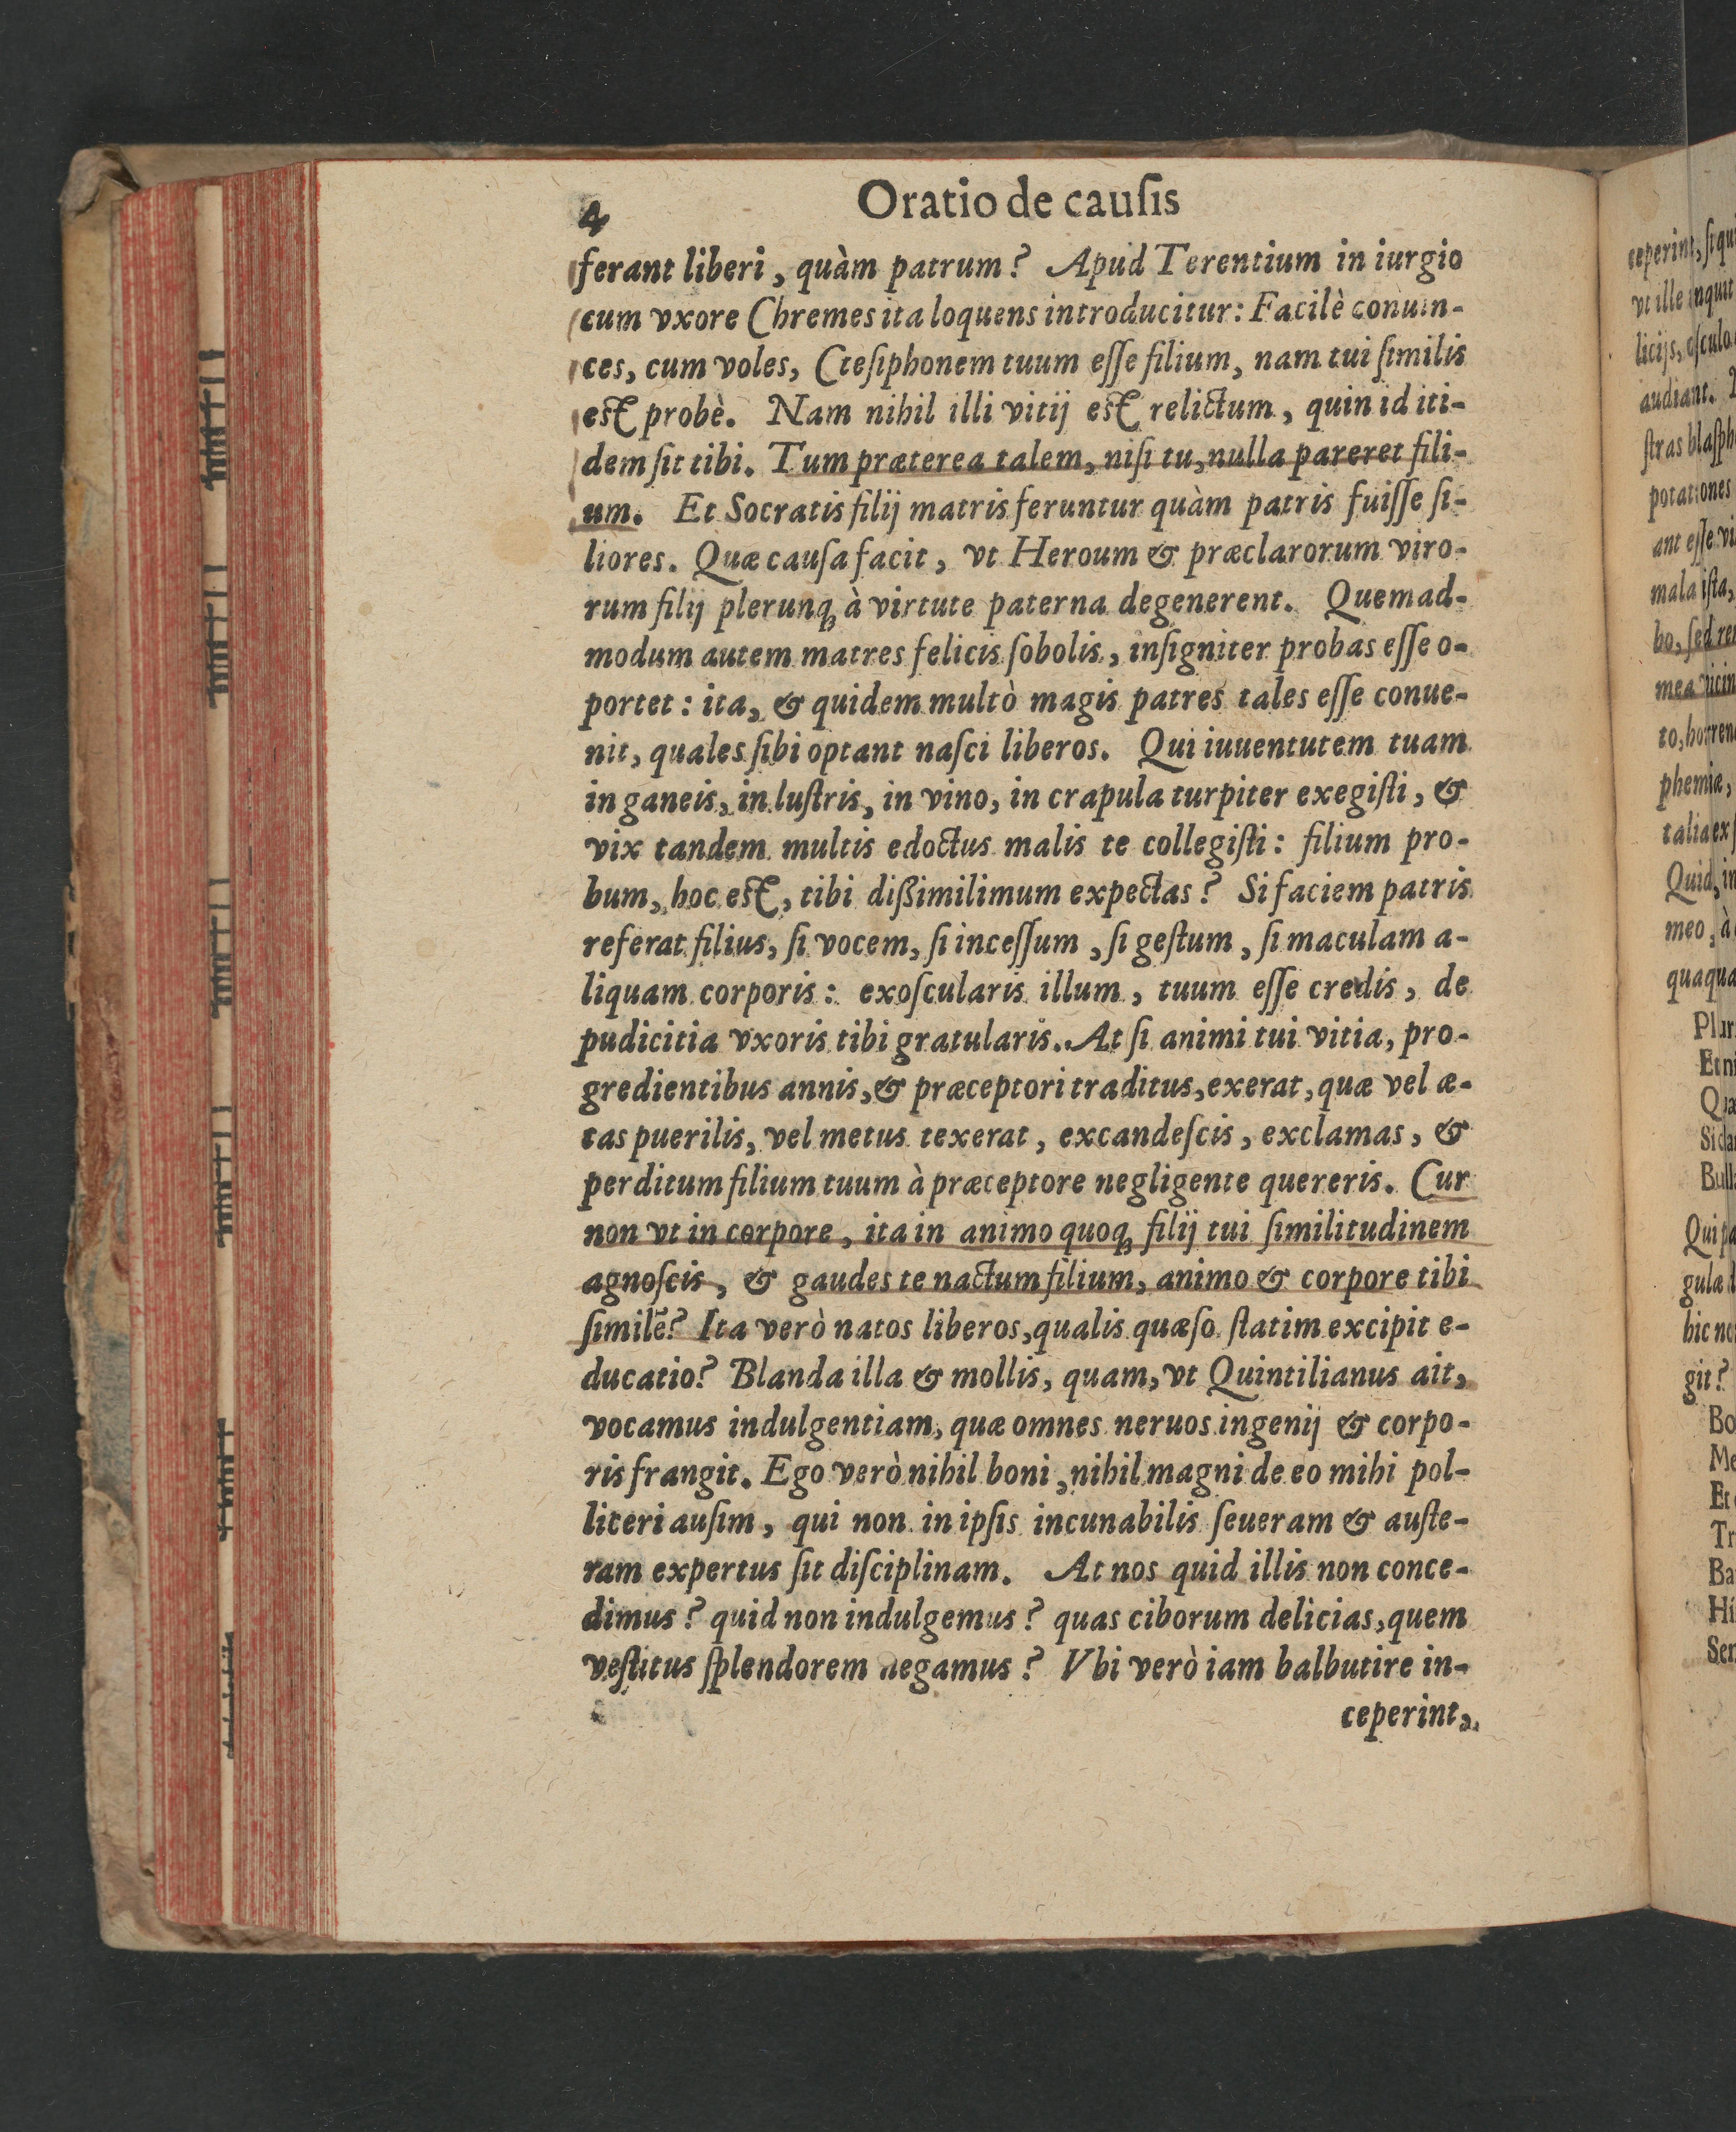 4 Oratio de cauſis
ferant liberi, quàm patrum? Apud Terentium in iurgio
cum vxore Chremes ita loquens introducitur: Facilè conuin-
ces, cum voles, Cteſiphonem tuum eſſe filium, nam tui ſimilis
eſt probè. Nam nihil illi vitij eſt relictum, quin id iti-
dem ſit tibi. Tum præterea talem, niſi tu, nulla pareret fili-
um. Et Socratis filij matris feruntur quàm patris fuiſſe ſi-
liores. Quæ cauſa facit, vt Heroum & præclarorum viro-
rum filij plerunq́ à virtute paterna degenerent. Quemad-
modum autem matres felicis ſobolis, inſigniter probas eſſe o-
portet: ita, & quidem multò magis patres tales eſſe conue-
nit, quales ſibi optant naſci liberos. Qui iuuentutem tuam
in ganeis, in luſtris, in vino, in crapula turpiter exegiſti, &
vix tandem multis edoctus malis te collegiſti: filium pro-
bum, hoc eſt, tibi dißimilimum expectas? Si faciem patris
referat filius, ſi vocem, ſi inceſſum, ſi geſtum, ſi maculam a-
liquam corporis: exoſcularis illum, tuum eſſe credis, de
pudicitia vxoris tibi gratularis. At ſi animi tui vitia, pro-
gredientibus annis, & præceptori traditus, exerat, quæ vel æ-
tas puerilis, vel metus texerat, excandeſcis, exclamas, &
perditum filium tuum à præceptore negligente quereris. Cur
non vt in corpore, ita in animo quoq́ filij tui ſimilitudinem
agnoſcis, & gaudes te nactum filium, animo & corpore tibi
ſimilē? Ita verò natos liberos, qualis quæſo ſtatim excipit e-
ducatio? Blanda illa & mollis, quam, vt Quintilianus ait,
vocamus indulgentiam, quæ omnes neruos ingenij & corpo-
ris frangit. Ego verò nihil boni, nihil magni de eo mihi pol-
liceri auſim, qui non in ipſis incunabilis ſeueram & auſte-
ram expertus ſit diſciplinam. At nos quid illis non conce-
dimus? quid non indulgemus? quas ciborum delicias, quem
veſtitus ſplendorem negamus? Vbi verò iam balbutire in-
ceperint,
ceperint, ſi
vt ille inquit
licijs, oſculo
audiant.
ſtras
potationes
ant eſſe
mala iſta,
bo, ſed
mea
phemiæ,
talia ex
Quid,
meo, à
Qui
gulæ
hic
git?
Bo
Me
Et
Tr
Ba
Hi
Ser